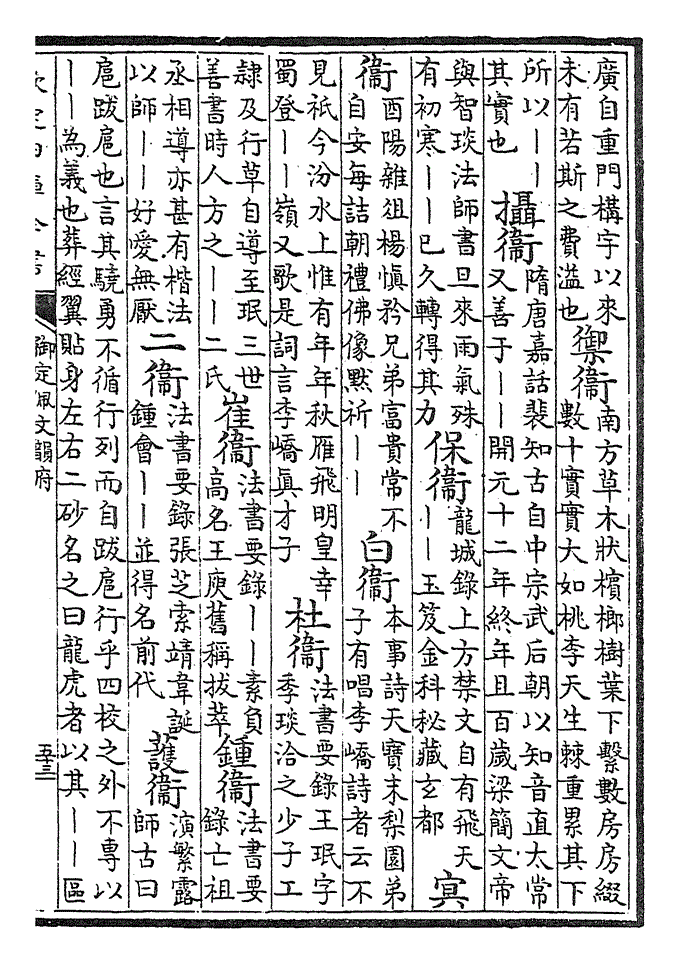 廣自重門構宇以來
未有若斯之費溢也
禦衞
南方草木狀檳榔樹葉下繫數房房綴
數十實實大如桃李天生棘重累其下
所以——
其實也
攝衞
隋唐嘉話裴知古自中宗武后朝以知音直太常
又善于——開元十二年終年且百歲梁簡文帝
與智琰法師書旦來雨氣殊
有初寒——已久轉得其力
保衞
龍城錄上方禁文自有飛天
——玉笈金科秘藏玄都
冥
衞
酉陽雜俎楊慎矜兄弟富貴常不
自安每詰朝禮佛像默祈——
白衞
本事詩天寶末梨園弟
子有唱李嶠詩者云不
見祇今汾水上惟有年年秋雁飛明皇幸
蜀登——嶺又歌是詞言李嶠眞才子
杜衞
法書要錄王珉字
季琰洽之少子工
隸及行草自導至珉三世
善書時人方之——二氏
崔衞
法書要錄——素負
高名王庾舊稱拔萃
鍾衞
法書要
錄亡祖
丞相導亦甚有楷法
以師——好愛無厭
二衞
法書要錄張芝索靖韋誕
鍾會——並得名前代
護衞
演繁露
師古曰
扈跋扈也言其驍勇不循行列而自跋扈行乎四校之外不專以
——為義也葬經翼貼身左右二砂名之曰龍虎者以其——區
欽定四庫全書
御定佩文韻府
五十三